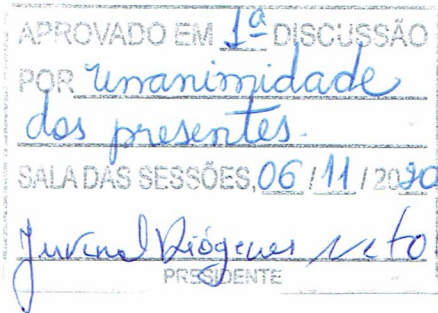 APROVADO EM 1ª DISCUSSÃO
POR Unanimidade
dos presentes.
SALA DAS SESSÕES, 06 / 11 / 2020
Juvenal Diógenes Neto
PRESIDENTE